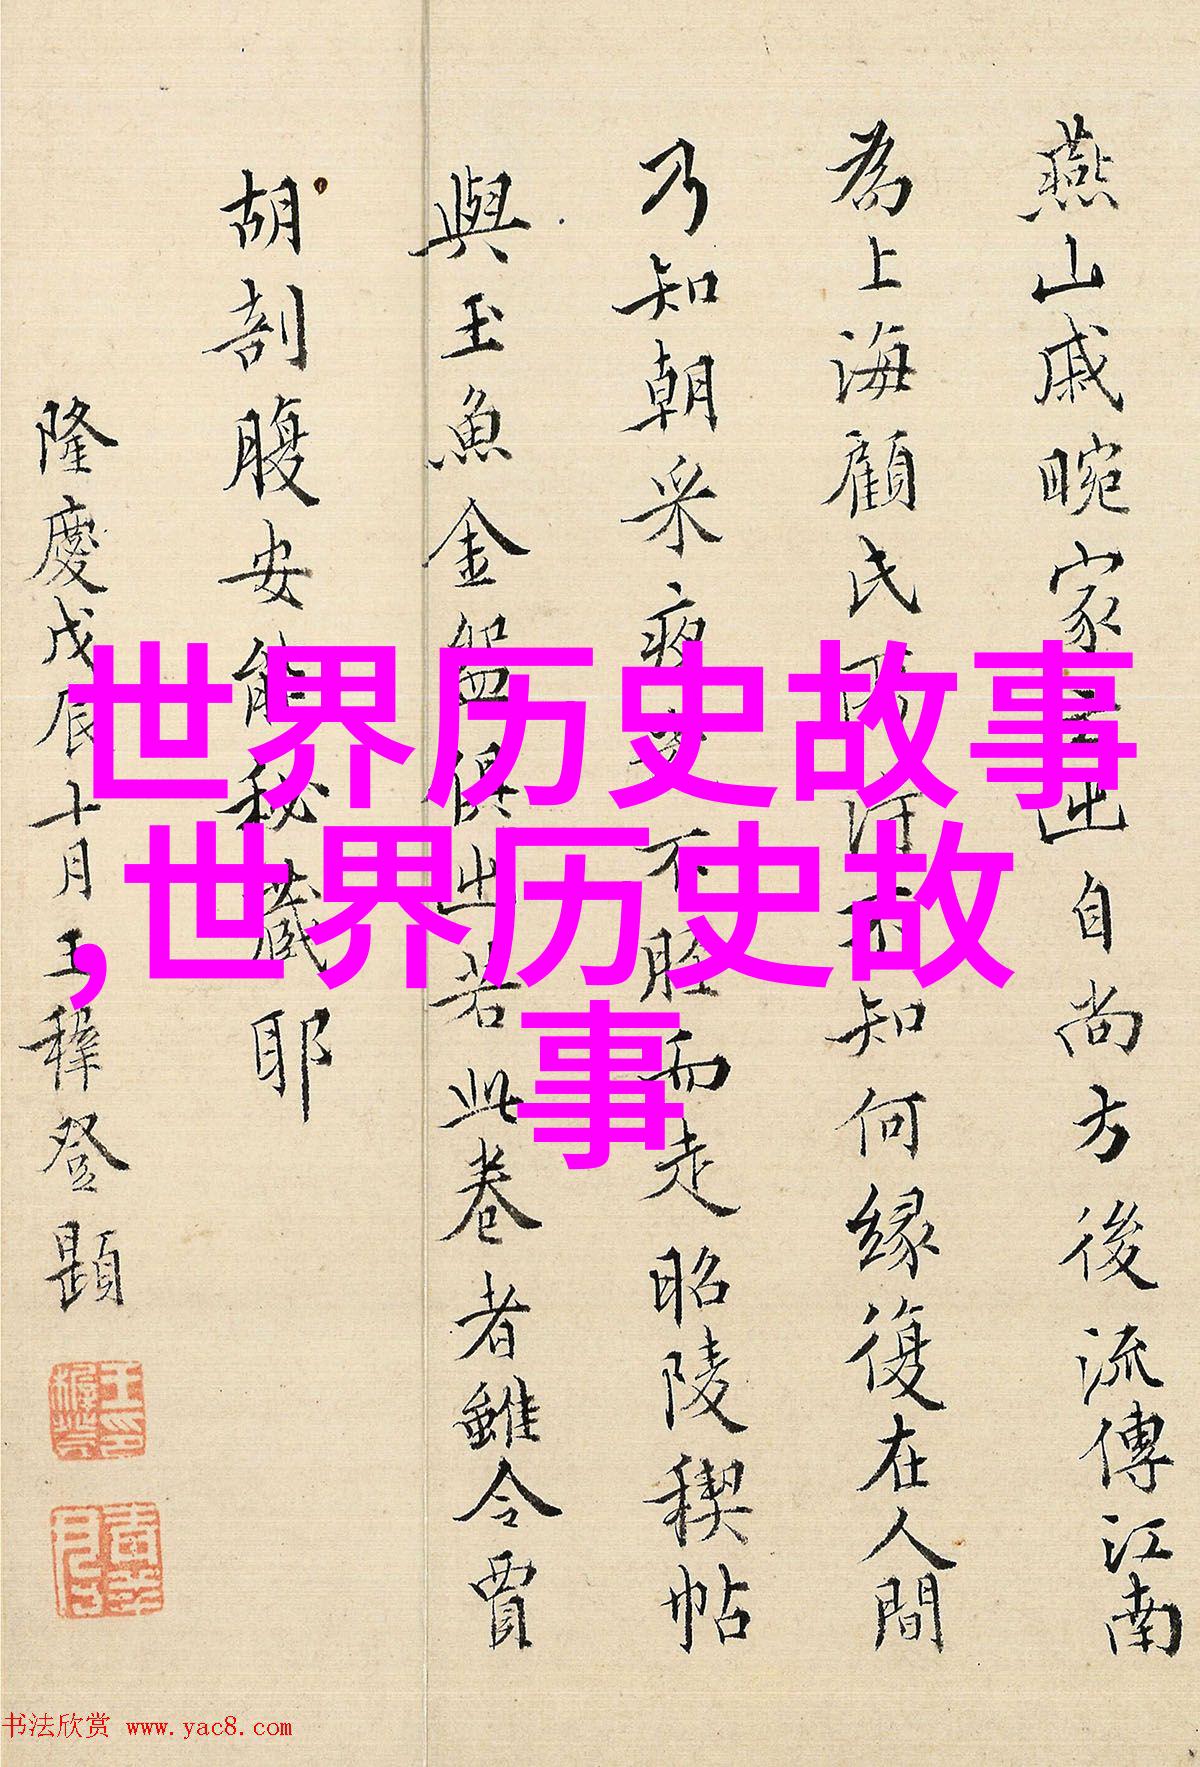 燕山戚畹家出自尚方後流傳江南
為上海顧氏不知何緣復在人間
乃知朝采夜不脛而走昭陵稧帖
與玉魚金盌俱出若此卷者雖令賈
胡剖腹安能秘藏耶
隆慶戊辰十月王穉登題
世界历史故事
,世界历史故
事
书法欣赏 www.yac8.com